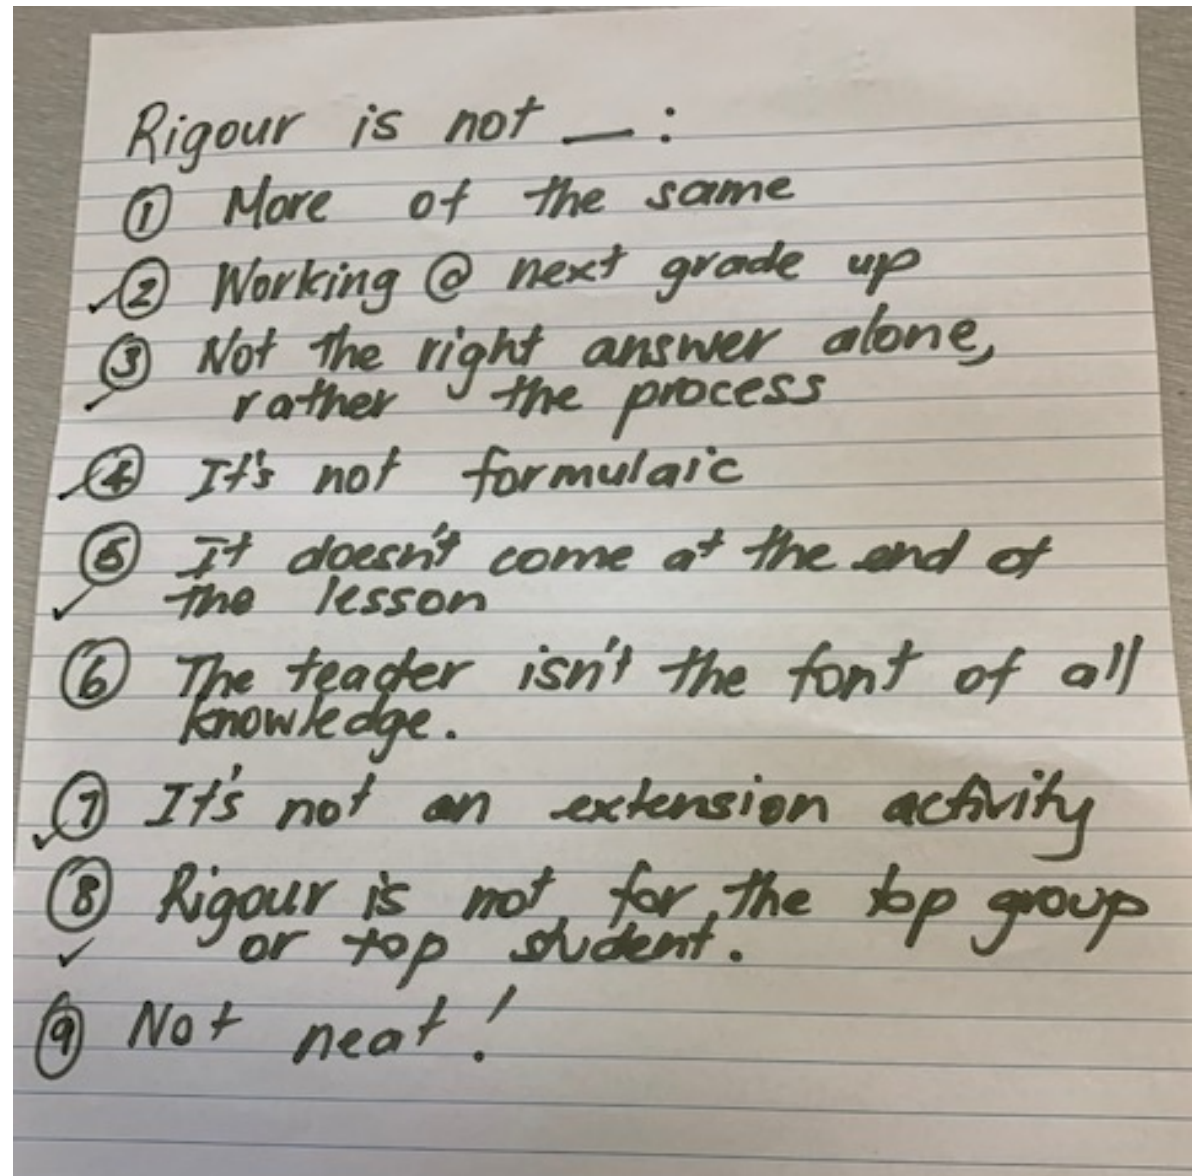 Rigour is not — :
① More of the same
✓② Working @ next grade up
③ Not the right answer alone,
✓ rather the process
✓④ It's not formulaic
⑤ It doesn't come at the end of
✓ the lesson
⑥ The teacter isn't the font of all
knowledge.
✓⑦ It's not an extension activity
⑧ Rigour is not for the top group
✓ or top student.
⑨ Not neat!